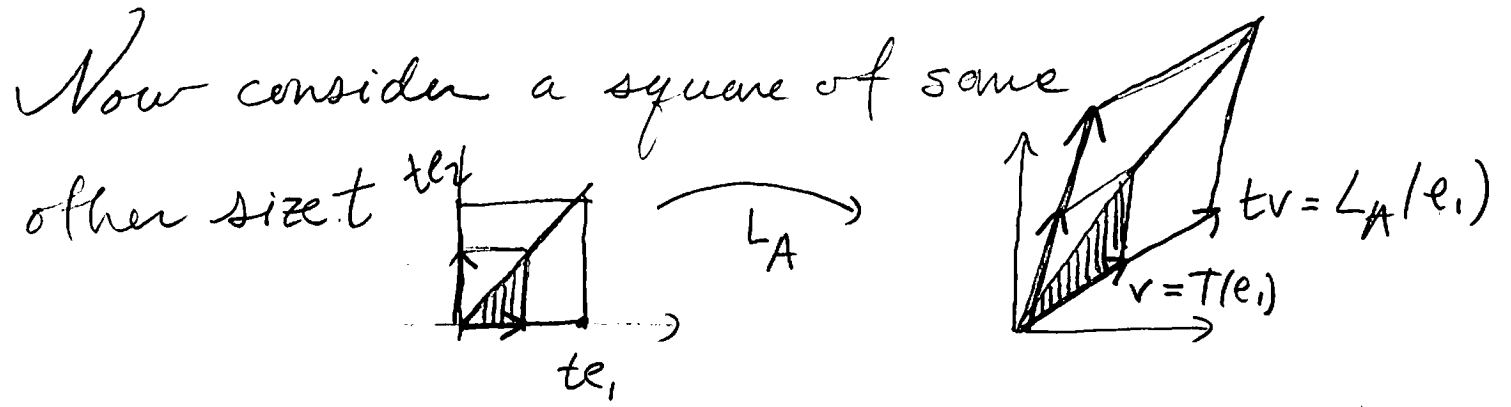 Now consider a square of some
other size t
te₂
L_A
tv = L_A(e₁)
v = T(e₁)
te₁